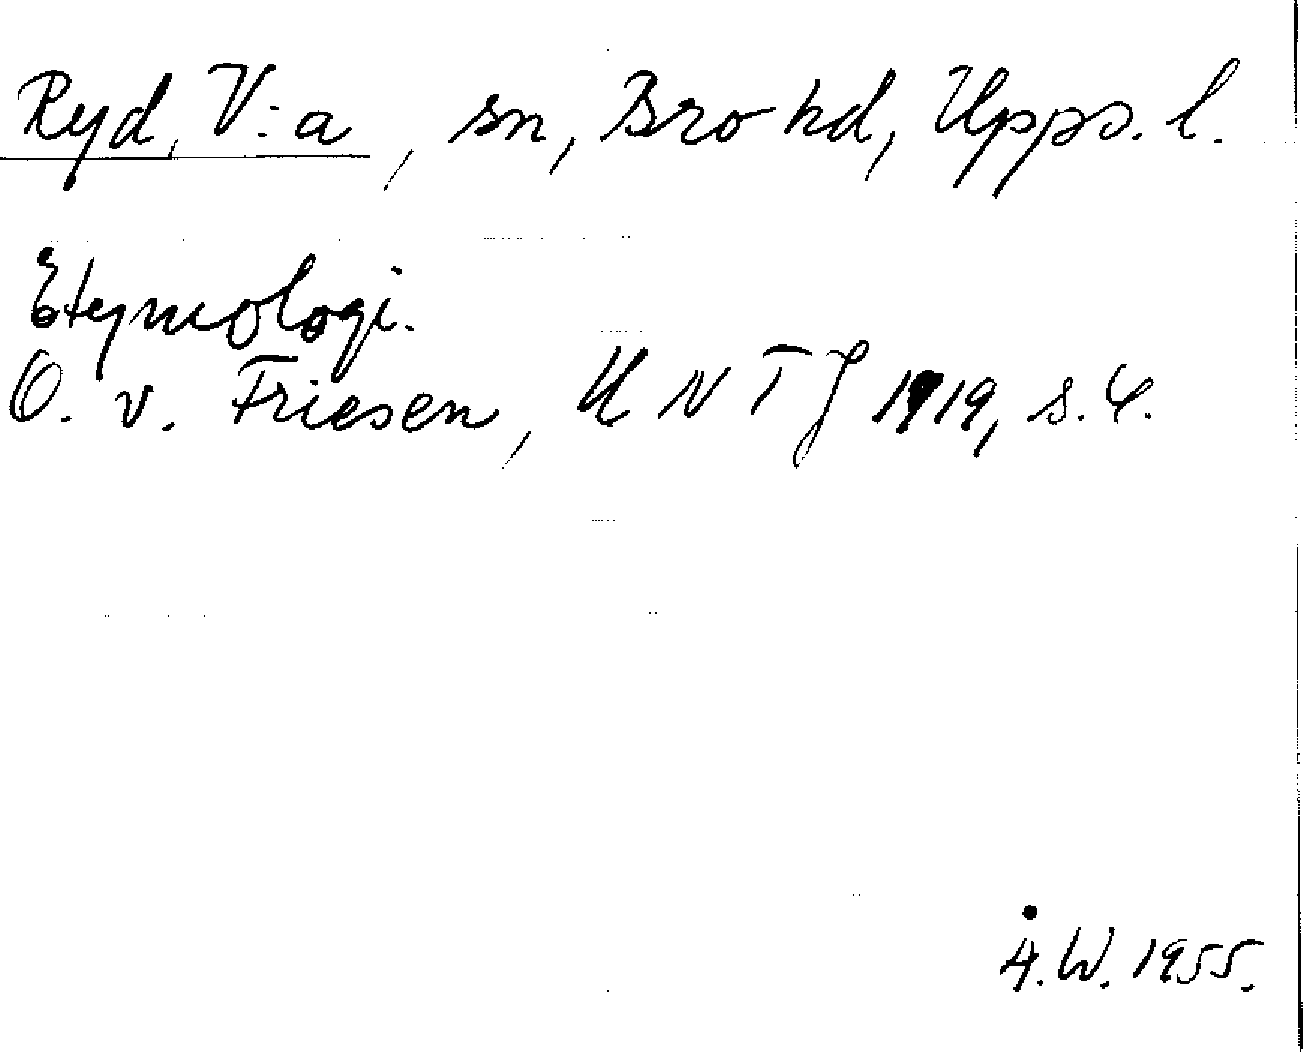 Ryd, V:a, sn, Bro hd, Upps. l.
Etymologi.
O. v. Friesen, UNTJ 1919, s. 4.
Å.W. 1955.